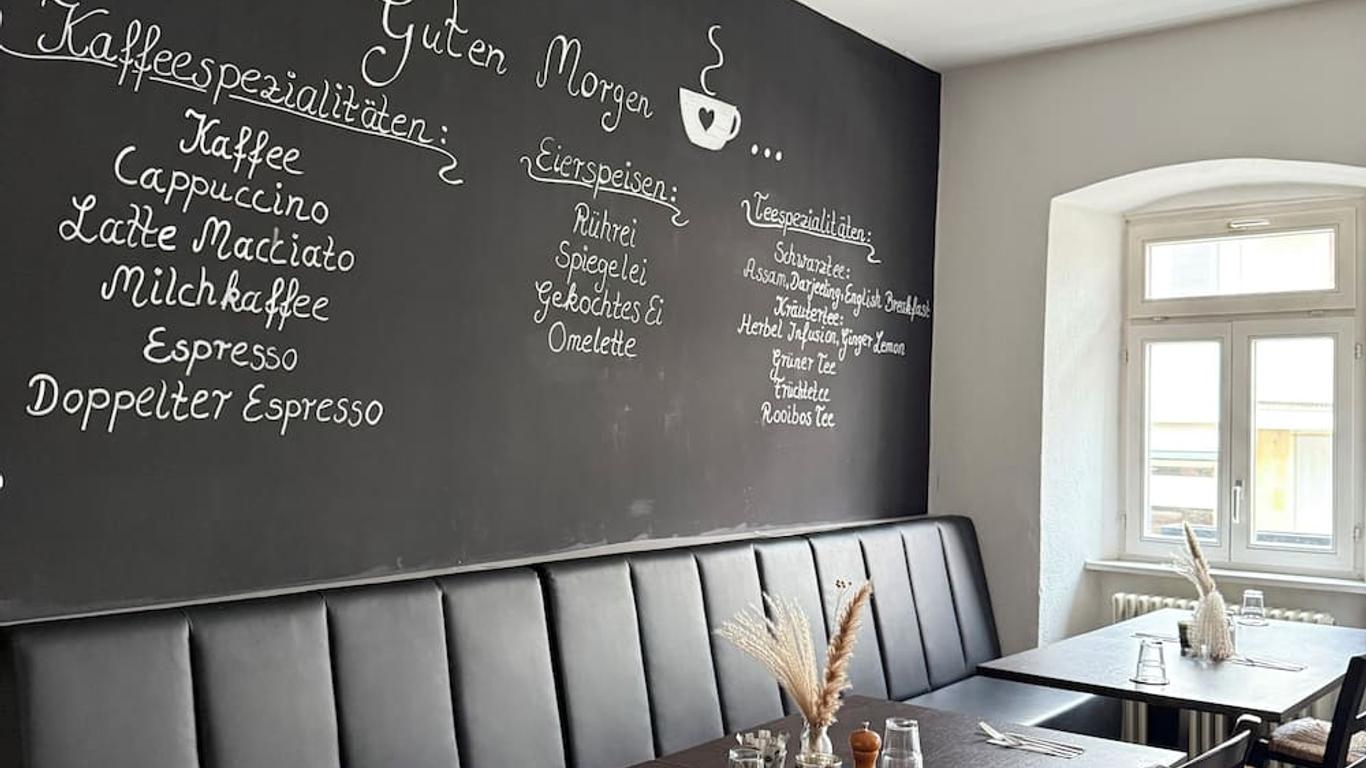 Guten Morgen ...
Kaffeespezialitäten:
Kaffee
Cappuccino
Latte Macciato
Milchkaffee
Espresso
Doppelter Espresso
Eierspeisen:
Rührei
Spiegelei
Gekochtes Ei
Omelette
Teespezialitäten:
Schwarztee:
Assam, Darjeeling, English Breakfast
Kräutertee:
Herbel Infusion, Ginger Lemon
Grüner Tee
Früchtetee
Rooibos Tee